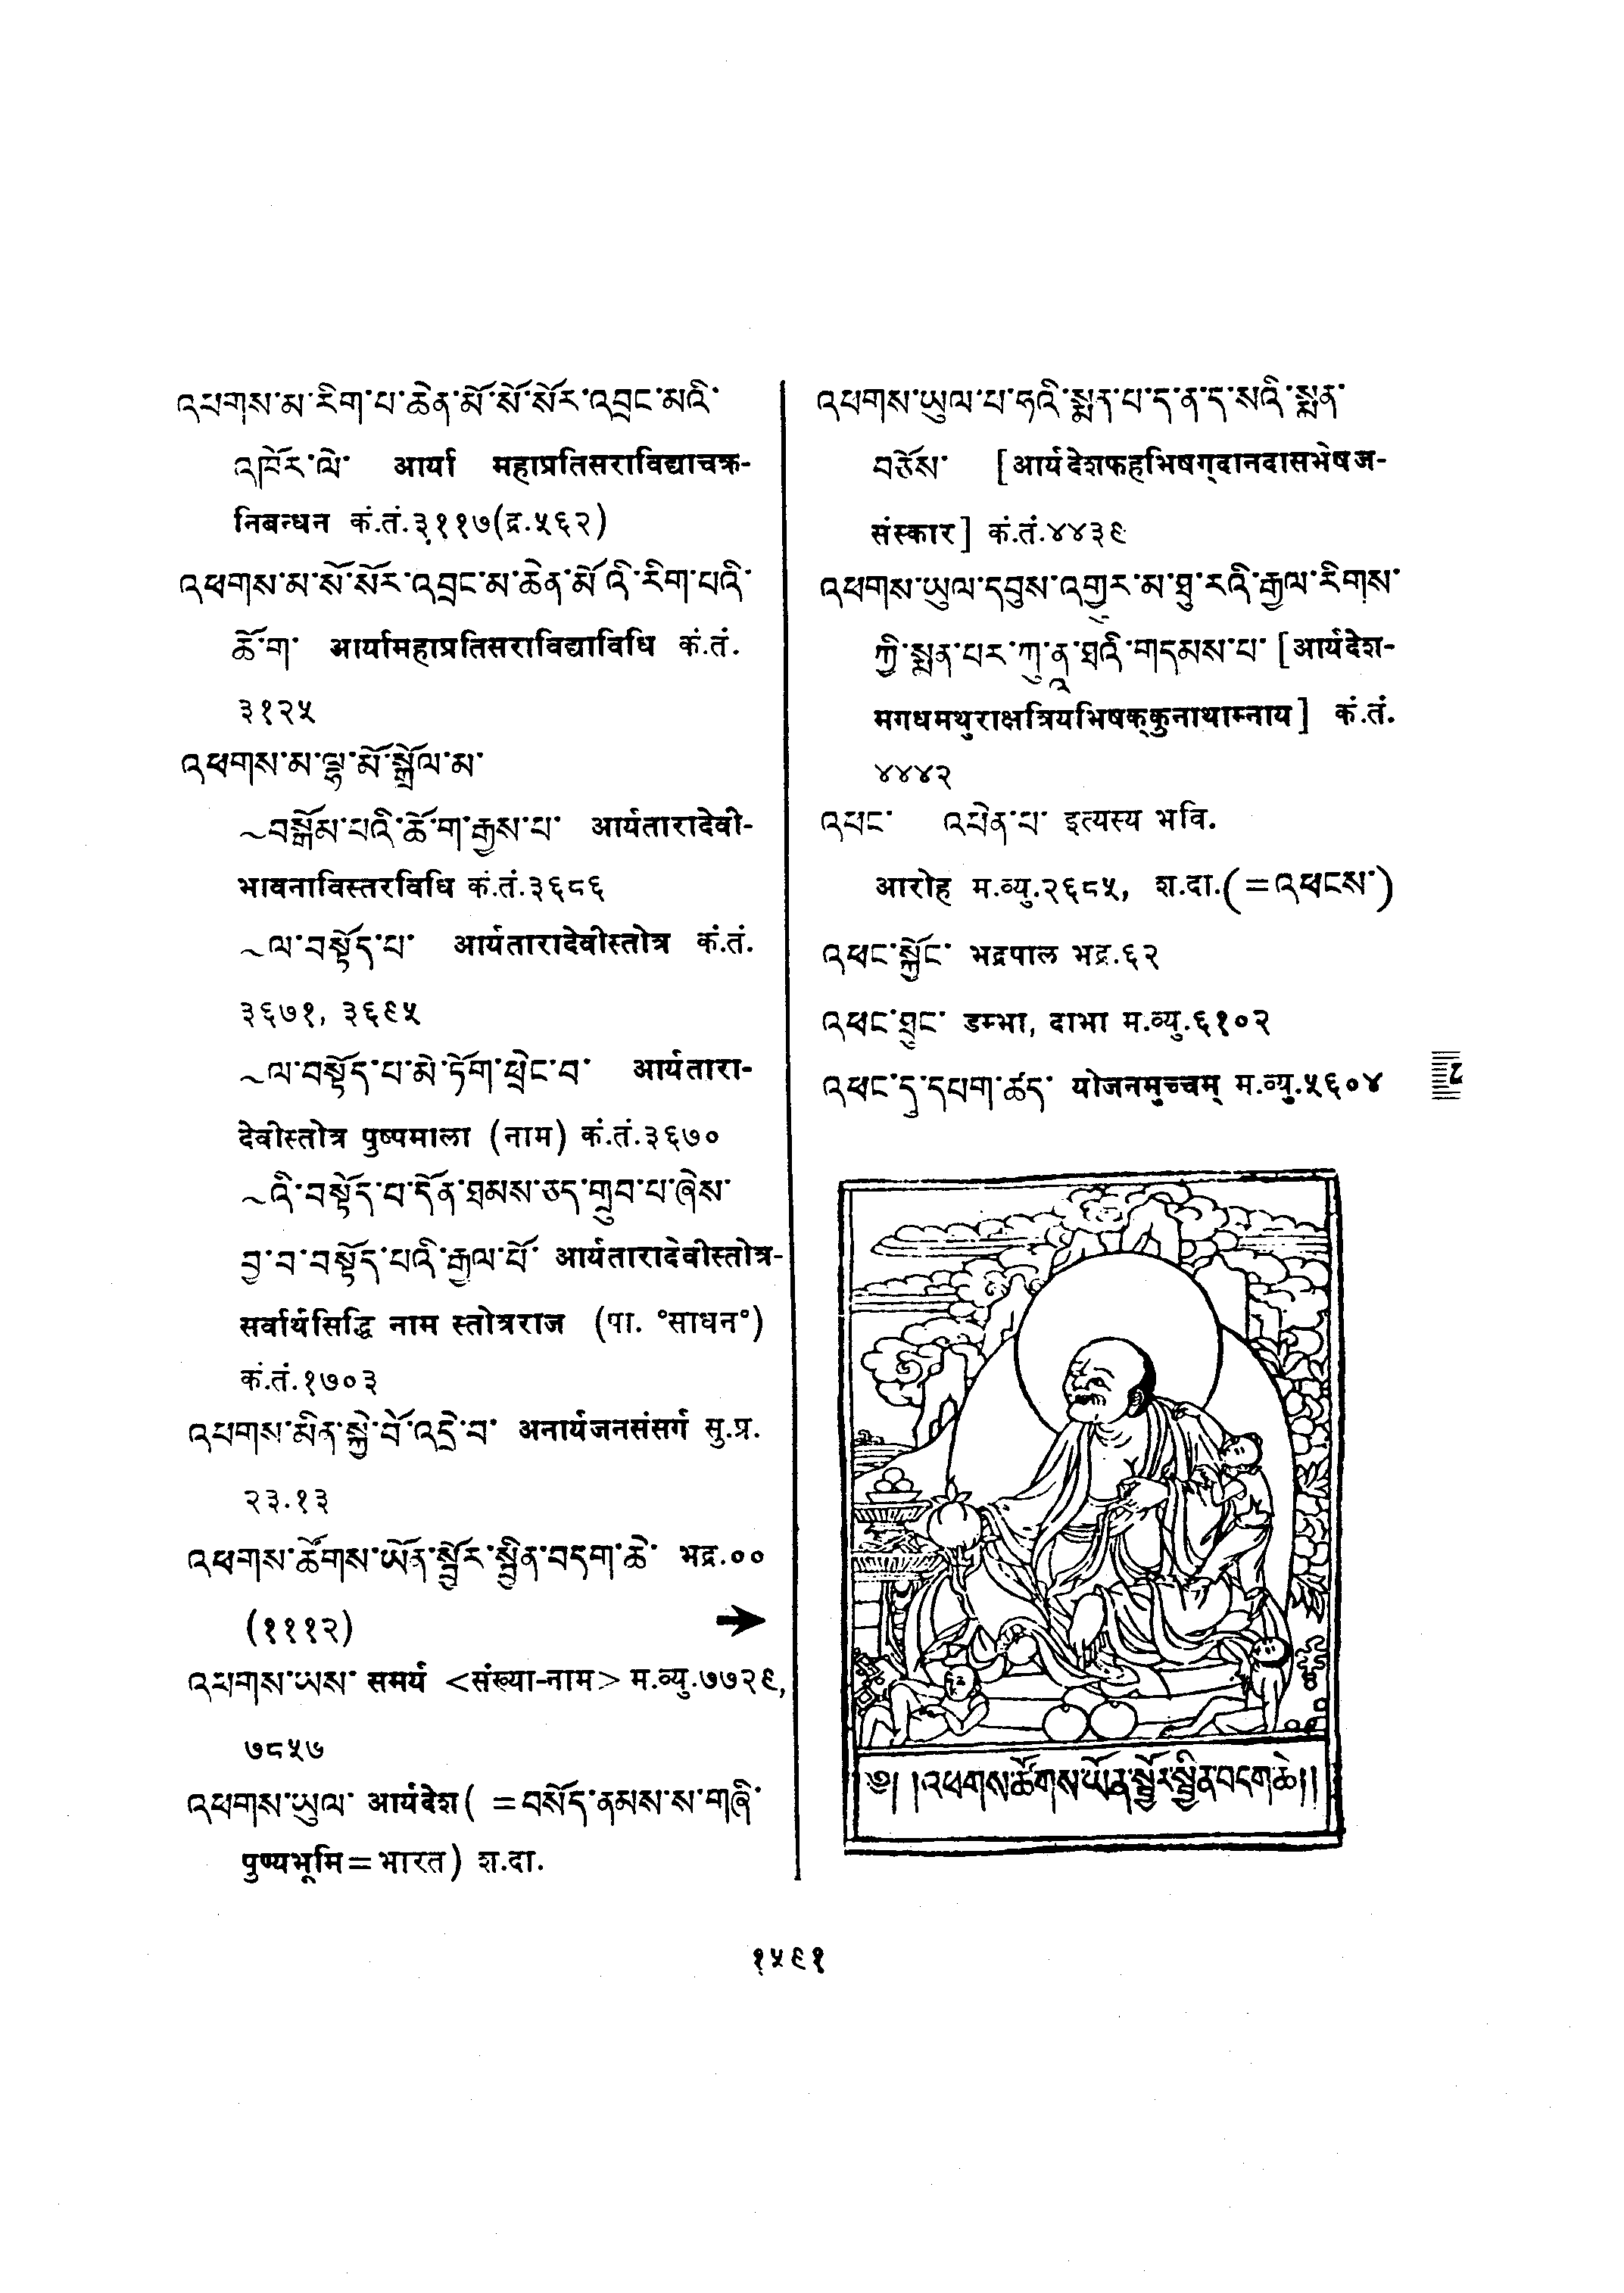 འཕགས་མ་རིག་པ་ཆེན་མོ་སོ་སོར་འབྲང་མའི་
འཁོར་ལེ་ आर्या महाप्रतिसराविद्याचक्र-
निबन्धन कं.तं.३११७(द्र.५६२)
འཕགས་མ་སོ་སོར་འབྲང་མ་ཆེན་མོའི་རིག་པའི་
ཆོ་ག་ आर्यामहाप्रतिसराविद्याविधि कं.तं.
३१२५
འཕགས་མ་ལྷ་མོ་སྒྲོལ་མ་
~བསྒོམ་པའི་ཆོ་ག་རྒྱས་པ་ आर्यतारादेवी-
भावनाविस्तरविधि कं.तं.३६८६
~ལ་བསྟོད་པ་ आर्यतारादेवीस्तोत्र कं.तं.
३६७१, ३६९५
~ལ་བསྟོད་པ་མེ་ཏོག་ཕྲེང་བ་ आर्यतारा-
देवीस्तोत्र पुष्पमाला (नाम) कं.तं.३६७०
~འི་བསྟོད་པ་དོན་ཐམས་ཅད་གྲུབ་པ་ཞེས་
བྱ་བ་བསྟོད་པའི་རྒྱལ་པོ་ आर्यतारादेवीस्तोत्र-
सर्वार्थसिद्धि नाम स्तोत्रराज (पा. °साधन°)
कं.तं.१७०३
འཕགས་མིན་སྐྱེ་བོ་འདྲེ་བ་ अनार्यजनसंसर्ग सु.प्र.
२३.१३
འཕགས་ཚོགས་ཡོན་སྦྱོར་སྦྱིན་བདག་ཆེ་ भद्र.००
(१११२) ➔
འཕགས་ཡས་ समर्य <संख्या-नाम> म.व्यु.७७२९,
७८५७
འཕགས་ཡུལ་ आर्यदेश( =བསོད་ནམས་ས་གཞི་
पुण्यभूमि=भारत) श.दा.
འཕགས་ཡུལ་པ་ཧའི་སྨན་པ་ད་ན་ད་སའི་སྨན་
བཅོས་ [आर्यदेशफहभिषग्दानदासभेषज-
संस्कार] कं.तं.४४३९
འཕགས་ཡུལ་དབུས་འགྱུར་མ་ཐུ་རའི་རྒྱལ་རིགས་
ཀྱི་སྨན་པར་ཀུ་ནཱ་ཐའི་གདམས་པ་ [आर्यदेश-
मगधमथुराक्षत्रियभिषक्कुनाथाम्नाय] कं.तं.
४४४२
འཕང་ འཕེན་པ་ इत्यस्य भवि.
आरोह म.व्यु.२६८५, श.दा.(=འཕངས་)
འཕང་སྐྱོང་ भद्रपाल भद्र.६२
འཕང་ཐུང་ डम्भा, दाभा म.व्यु.६१०२
འཕང་དུ་དཔག་ཚད་ योजनमुच्चम् म.व्यु.५६०४
༄། །འཕགས་ཚོགས་ཡོན་སྦྱོར་སྦྱིན་བདག་ཆེ།།
१५९१